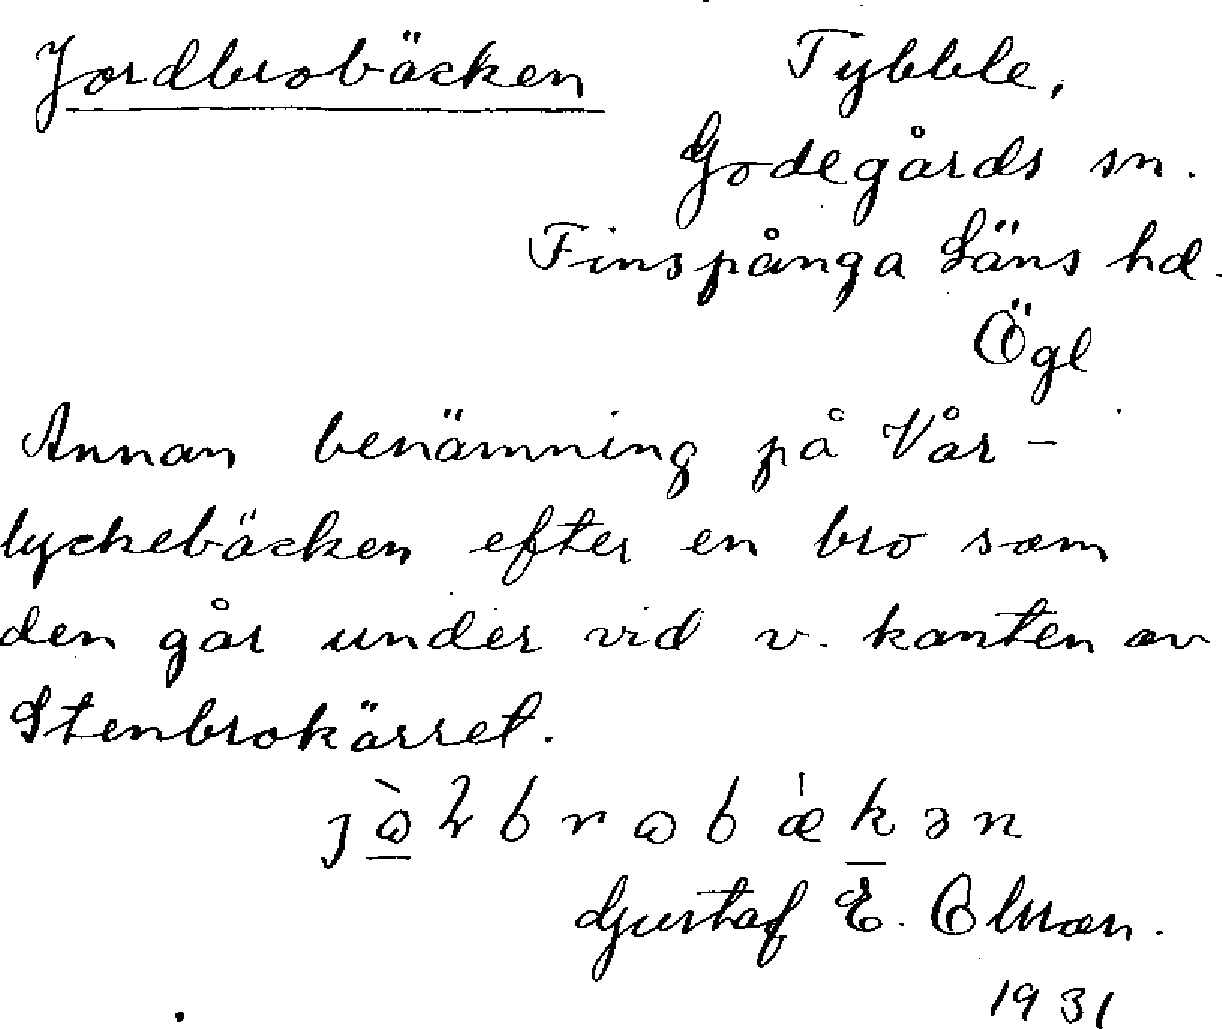 Jordbrobäcken
Tybble,
Godegårds sn.
Finspånga Läns hd.
Ögl
Annan benämning på Vår-
lyckebäcken efter en bro som
den går under vid v. kanten av
Stenbrokärret.
Gustaf E.
1931